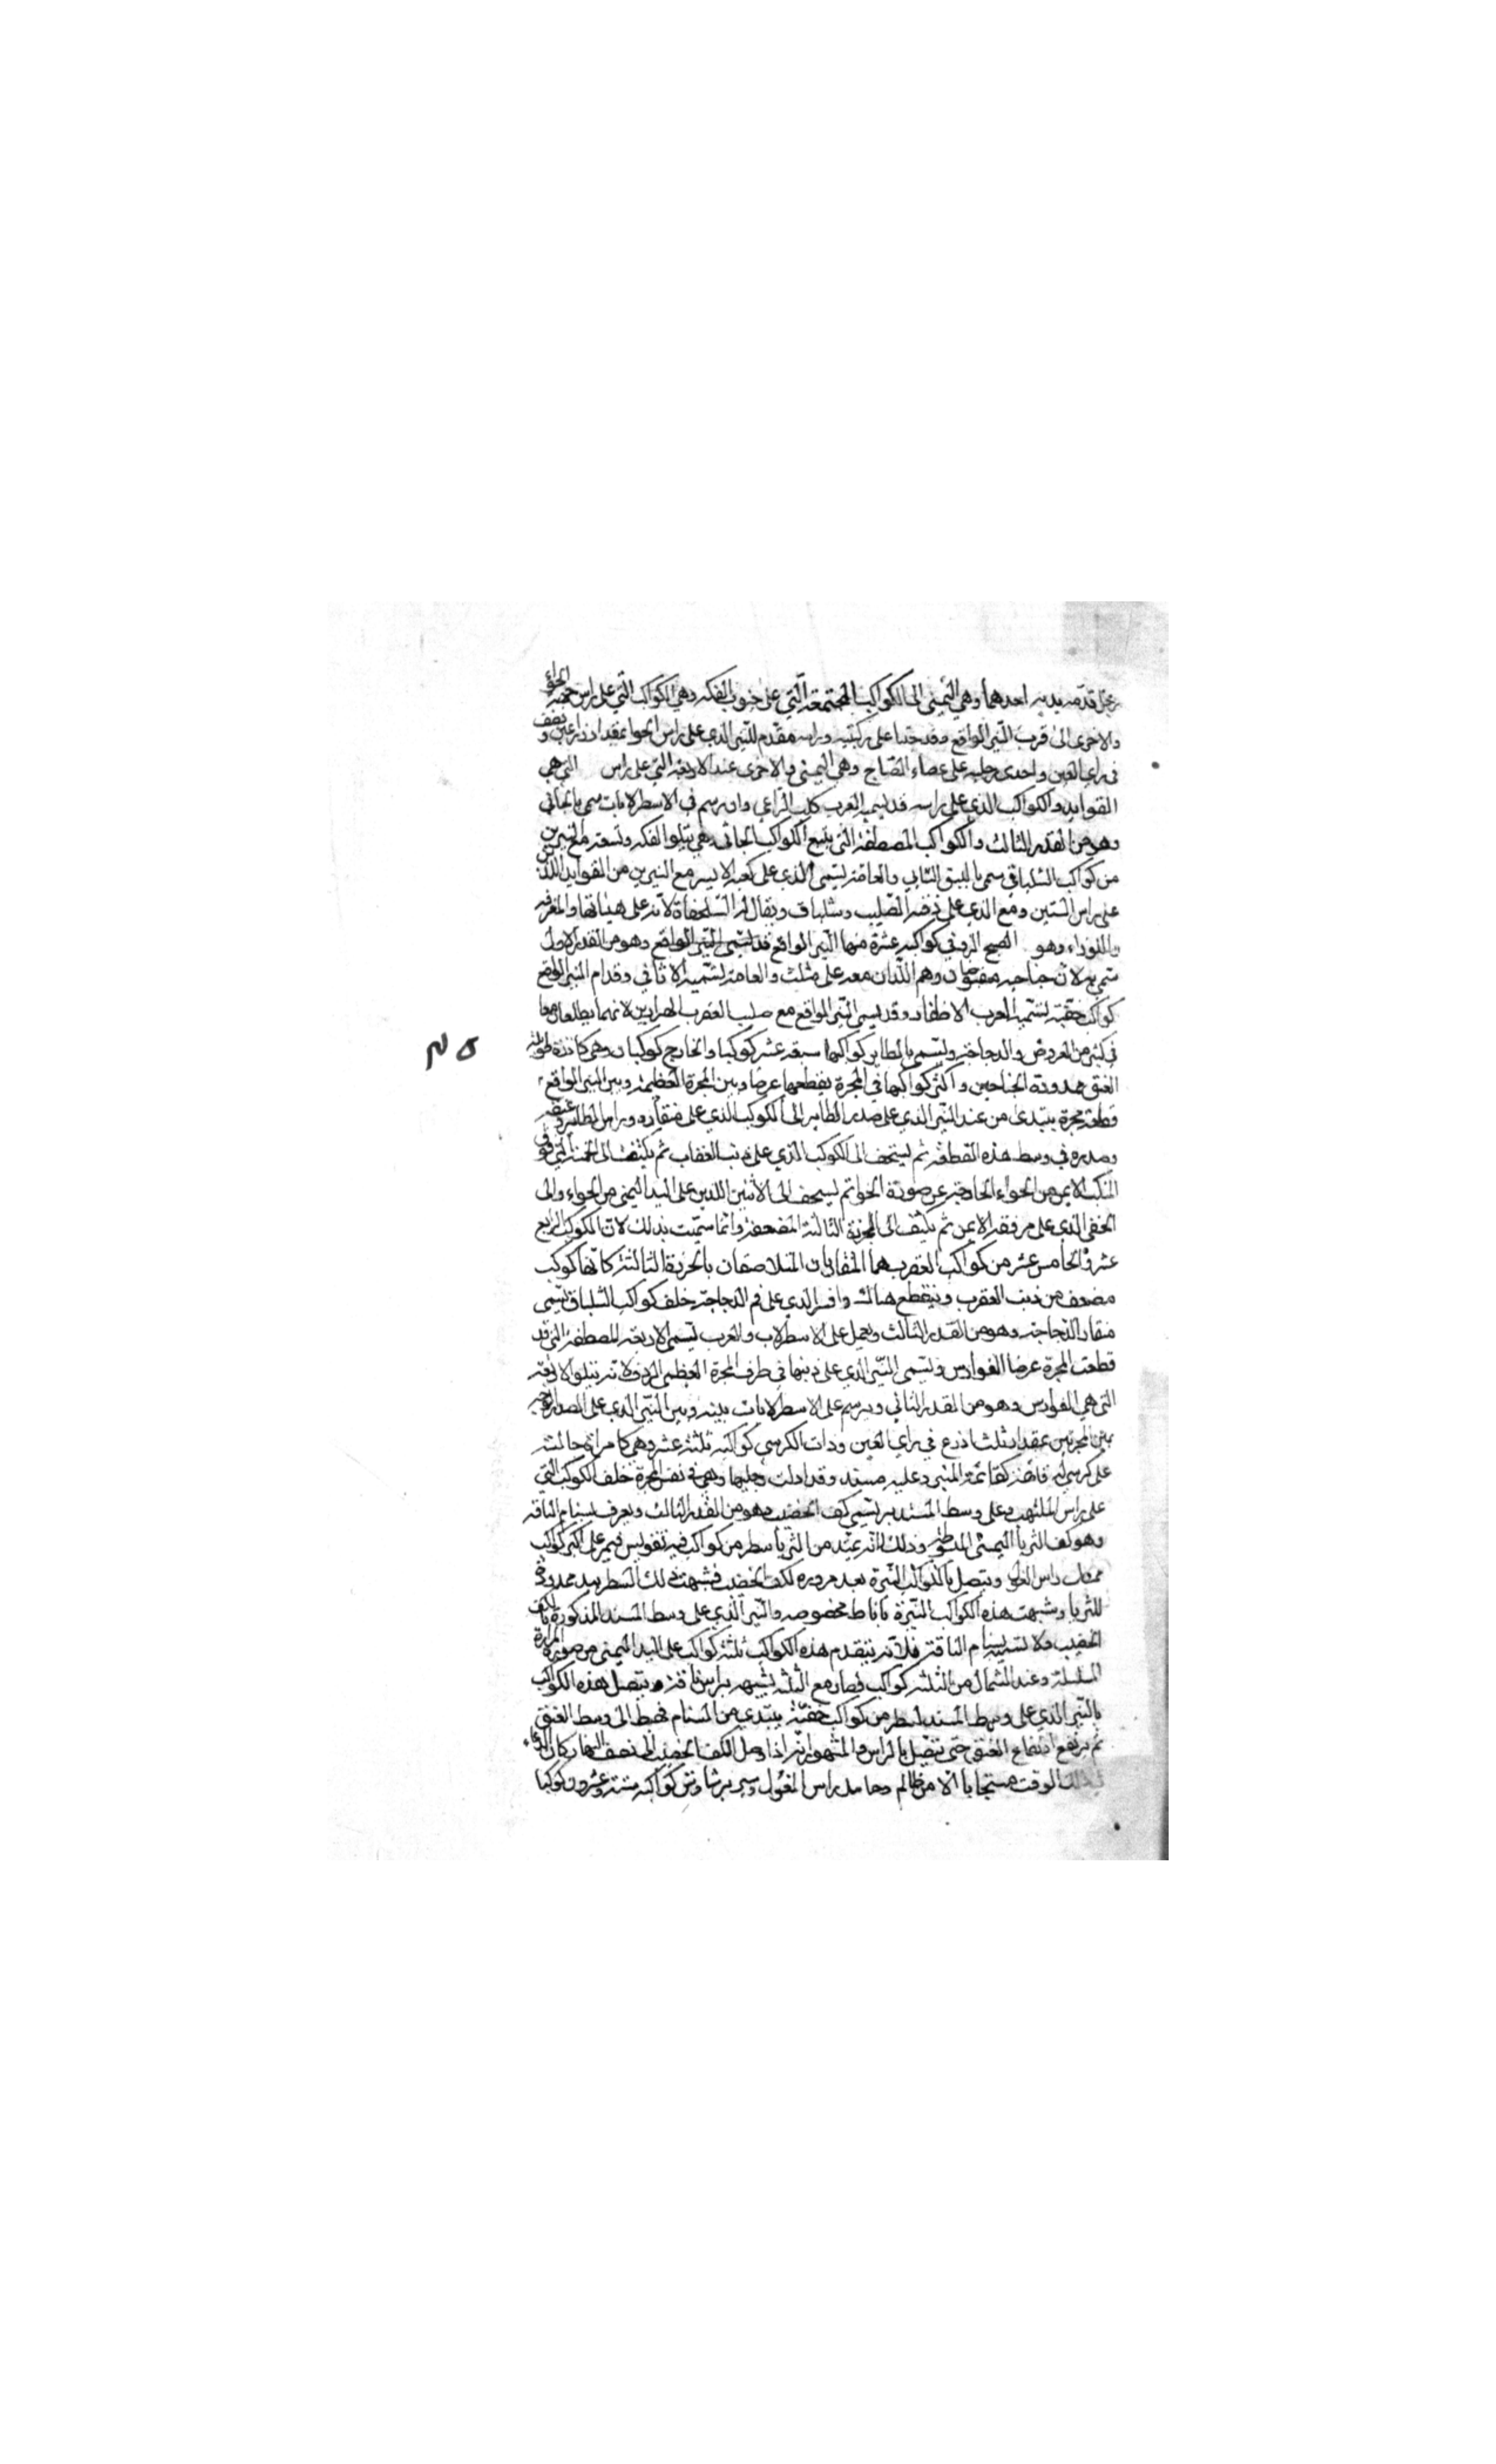 رجل قد مد يديه احدهما وهي اليمنى الى الكواكب المجتمعة التي على جنوب الفكه وهي الكواكب التي على راس الحواء
والاخرى الى قرب النسر الواقع وقد جثا على ركبتيه وراسه مقدم للنير الذي على راس الحوا بمقدار ذراعين ونصف
في راي العين واحدى رجليه على عصاء الصناج وهي اليمنى والاخرى عند الاربعة التي على راس التي هي
العوايد والكواكب الذي على راسه قد تسميه العرب كلب الراعي وان رسم في الاسطرلابات سمي بالجاثي
وهو من القدر الثالث والكواكب المصطفة التي يتبع الكواكب الجاثي وهي تتلو الفكه وتسعة مع النيرين
من كواكب الشلياق سمي بالنسق الشامي والعامة تسمي الذي على كعبه الايسر مع النيرين من العوايد اللذين
على راس التنين ومع الذي على ذقنه الصليب وشلياق ويقال له السلحفاة لانه على هيئاتها والمعرفة
واللوزاء وهو الصبح الرومي كواكبه عشرة منها النسر الواقع وهو من القدر الاول
سمي به لان جناحيه مضمومان وهم اللذان معه على مثلث والعامة تسميه الاثافي وقدام النسر الواقع
كواكب خفية تسميها العرب الاظفار وقد يسمى النسر الواقع مع قلب العقرب الهرارين لانهما يطلعان معا
في كثير من العروض والدجاجة وتسمى بالطاير كواكبها سبعة عشر كوكبا والخارج كوكبان وهي كاوزة طويلة
العنق ممدودة الجناحين واكثر كواكبها في المجرة يقطعها عرضا وبين المجرة العظيمة وبين النسر الواقع
قطعة مجرة يبتدى من عند النير الذي على صدر الطاير الى الكوكب الذي على منقاره وراس الطاير وعنقه
وصدره في وسط هذه القطعة ثم يستخف الى الكوكب الذي على ذنب العقاب ثم يكثف الى الخمسة التي فوق
المنكب الايمن من الحواء الخارجة عن صورة الحوا ثم يسخف الى الاثنين اللذين على اليد اليمنى من الحواء والى
الخفي الذي على مرفقه الايمن ثم يكثف الى الخرزة الثالثة المضعفة وانما سميت بذلك لان الكوكب الرابع
عشر والخامس عشر من كواكب العقرب هما المتقاربان المتلاصقان بالخرزة الثالثة كانها كوكب
مضعف من ذنب العقرب وينقطع هناك والنير الذي على فم الدجاجة خلف كواكب الشلياق يسمى
منقار الدجاجة وهو من القدر الثالث ويعمل على الاسطرلاب والعرب تسمى الاربعة المصطفة التي قد
قطعت المجرة عرضا الفوارس وتسمى النير الذي على ذنبها في طرف المجرة العظمى الردف لانه يتلو الاربعة
التي هي الفوارس وهو من القدر الثاني ويرسم على الاسطرلابات بينه وبين النير الذي على الصدر
بين المجرتين بمقدار ثلث اذرع في راي العين وذات الكرسي كواكبه ثلثة عشر وهي كامراة جالسة
على كرسي له قائمة كقائمة المنبر وعليه مسند وقد ادلت رجليها وهي في نفس المجرة خلف الكوكب التي
على راس الملتهب وعلى وسط المسند نير يسمى كف الخضيب وهو من القدر الثالث ويعرف بسنام الناقة
وهو كف الثريا اليمنى المبسوطة وذلك انه يمتد من الثريا سطر من كواكب فيه تقويس فيمر على اكثر كواكب
حامل راس الغول ويتصل بالكواكب النيرة بعد مروره لكف الخضيب فشبهت ذلك السطر بيد ممدودة
للثريا وشبهت هذه الكواكب النيرة باناط مخصوصه والنير الذي على وسط المسند المذكورة بالكف
الخضيب والاتسمية بسنام الناقة فلانه يتقدم هذه الكواكب ثلثة كواكب على اليد اليمنى من صورة المراة
المسلسلة وعند الشمال من الثلثة كواكب فصار مع الثلثة يشبهه براس ناقة ويتصل هذه الكواكب
بالنير الذي على وسط المسند بسطر من كواكب خفية يبتدي من السنام فيحط الى وسط العنق
ثم يرتفع ارتفاع العنق حتى يتصل بالراس والمشهور انه اذا وصل الكف الخضيب الى نصف النهار كان الدعاء
لذلك الوقت مستجابا الا من ظالم وحامل راس الغول وسمى برشاوش كواكبه ستة وعشرون كوكبا